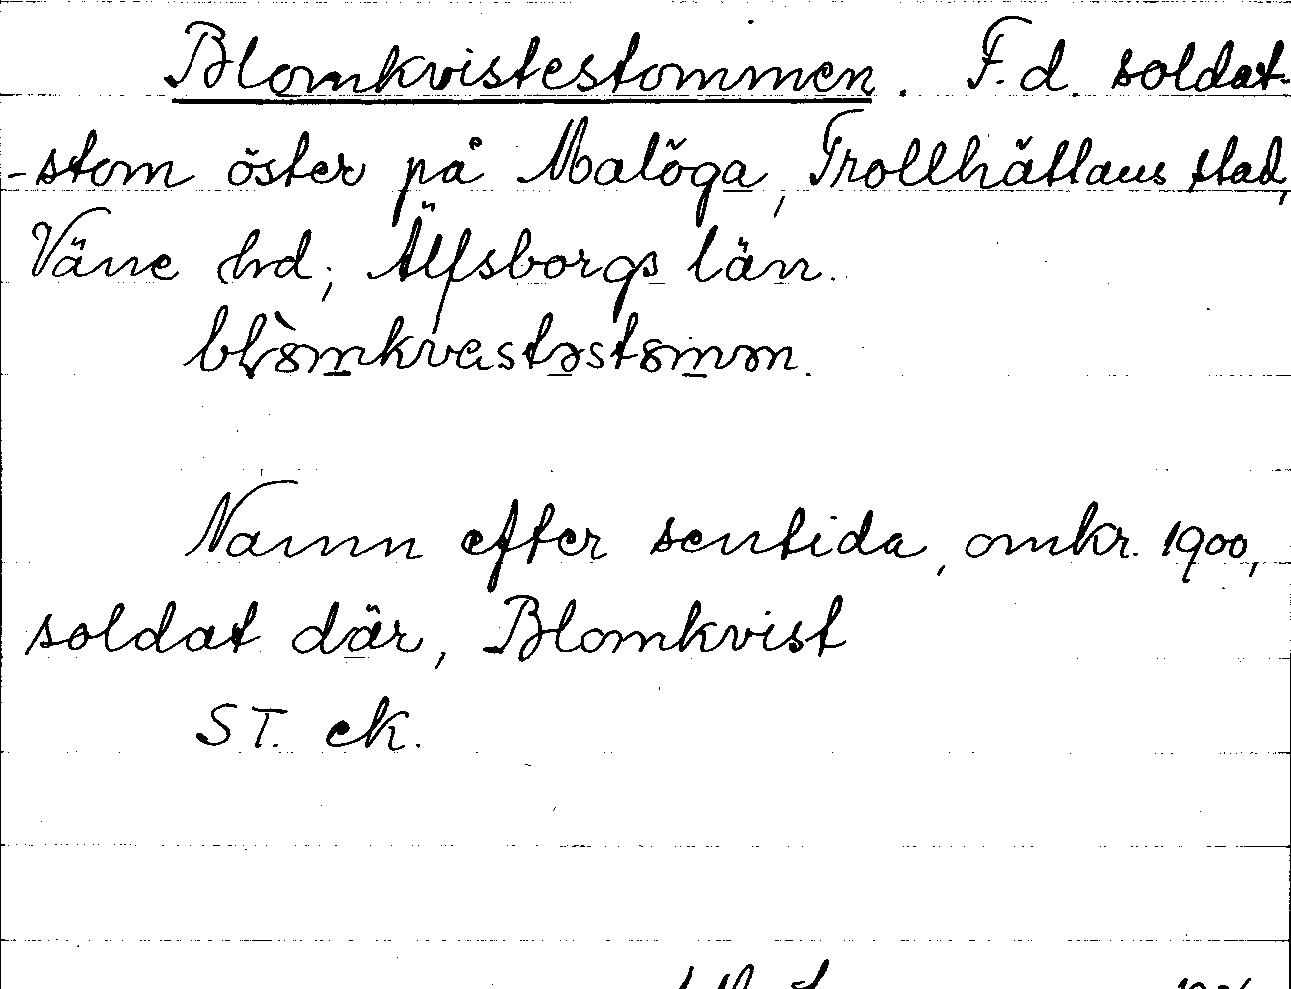 Blomkvistestommen. F.d. soldat-
-stom öster på Malöga, Trollhättans stad,
Väne hd, Älfsborgs län.
Namn efter sentida, omkr. 1900,
soldat där, Blomkvist
ST. ek.